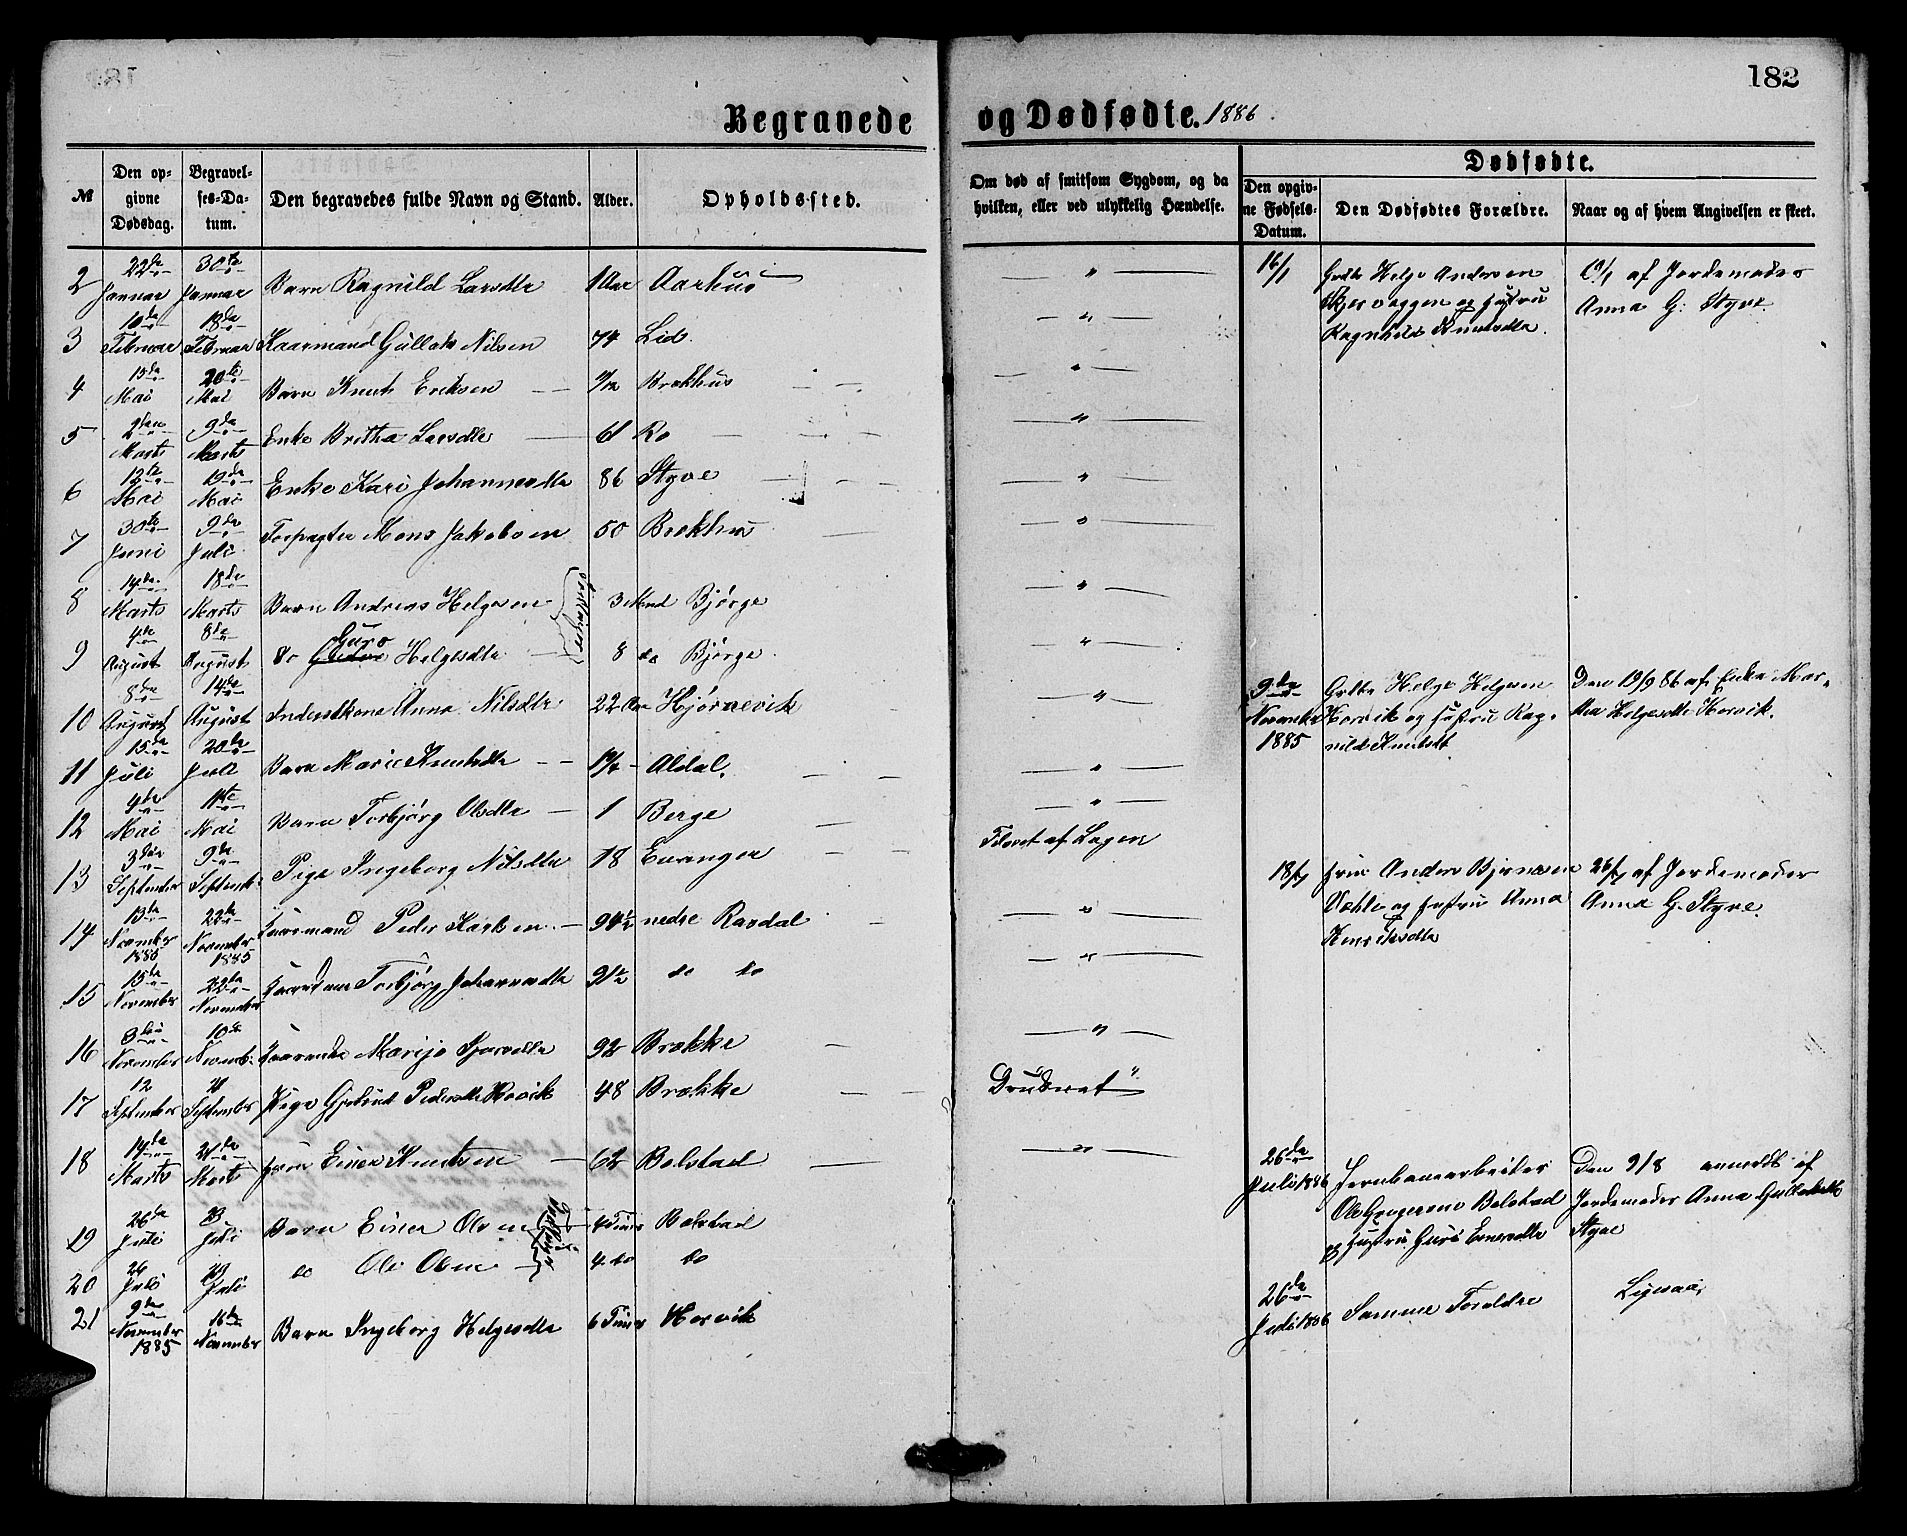 182
Begravede og Dødfødte. 1886.
№
Den op-
givne
Dødsdag.
Begravel-
ses-Da-
tum.
Den begravedes fulde Navn og Stand.
Alder.
Opholdssted.
Om død af smitsom Sygdom, og da
hvilken, eller ved ulykkelig Hændelse.
Dødfødte.
Den opgiv-
ne Fødsels-
Datum.
Den Dødfødtes Forældre.
Naar og af hvem Angivelsen er skeet.
2 22de Januar 30te Januar Barn Ragnild Larsdtr 1 Aar Aarhus "
3 10de Februar 18de Februar Kaarmand Gullak Nilsen 74 Lid "
4 15de Mai 20de Mai Barn Knut Eriksen Brækhus "
5 2den Marts 9de Marts Enke Britha Larsdtr 61 Ro "
6 12te Mai 19de Mai Enke Kari Johannesdtr 86 Styve "
7 30te Juni 9de Juli Forpagter Mons Jakobsen 50 Brækhus "
8 14de Marts 18de Marts Barn Andreas Helgesen 3 Mnd Bjørge "
9 4de August 8de August do Guro Helgesdtr 8 do Bjørge "
10 8de August 14de August Inderstkone Anna Nilsdtr 22 Aar Hjørnevik "
11 15de Juli 20de Juli Barn Marie Knutsdtr Aldal. "
12 4de Mai 11te Mai Barn Torbjørg Olsdtr 1 Berge "
13 3die September 9de Septemb. Pige Ingeborg Nilsdtr 18 Evanger af Lagen
14 13de November 1885 22de November 1885 Kaarmand Peder Larsen 94½ nedre Rasdal "
15 15de November 22de November Torbjørg Johannesdtr 91½ do do "
16 3die November 10de Novemb. Marijo Sjursdtr 92 Brække "
17 12 September September Pige Gjertrud Pedersdtr Horvik 48 Brække Druknet "
18 14de Marts 21de Marts Einar Knutsen 62 Bolstad "
19 26de Juli Juli Barn Einar Olsen 4 Timer Bolstad
20 26 Juli Juli do Ole Olsen 4 do do
21 9de November 1885 16de November Barn Ingeborg Helgesdtr 6 Timer Horvik
16/1 Helge Andersen
og Hustru
Ragnhild Knutsdtr.
af Jordemoder
Anna G. Styve.
9de November 1885 Helge Helgesen
Horvik og Hustru Rag-
nild Knutsdt
Den 19/9 86 af Enke Mar-
tha Helgesdtr Horvik.
18/7 Anders Bjørnsen
og Hustru Anna
Henriksdtr
26/7 af Jordemoder
Anna G. Styve.
26de Juli 1886 Jernbanearbeider
Ole Bolstad
og Hustru Guri Einersdtr
Den 9/8 anmeldt af
Jordemoder Anna Gullaksdtr
Styve
26de Juli 1886 Samme Foreldre
Ligesaa,